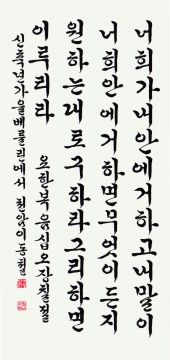 너희가내안에거하고내말이
너희안에거하면무엇이든지
원하는대로구하라그리하면
이루리라 요한복음십오장칠절
신축년가을베를린에서